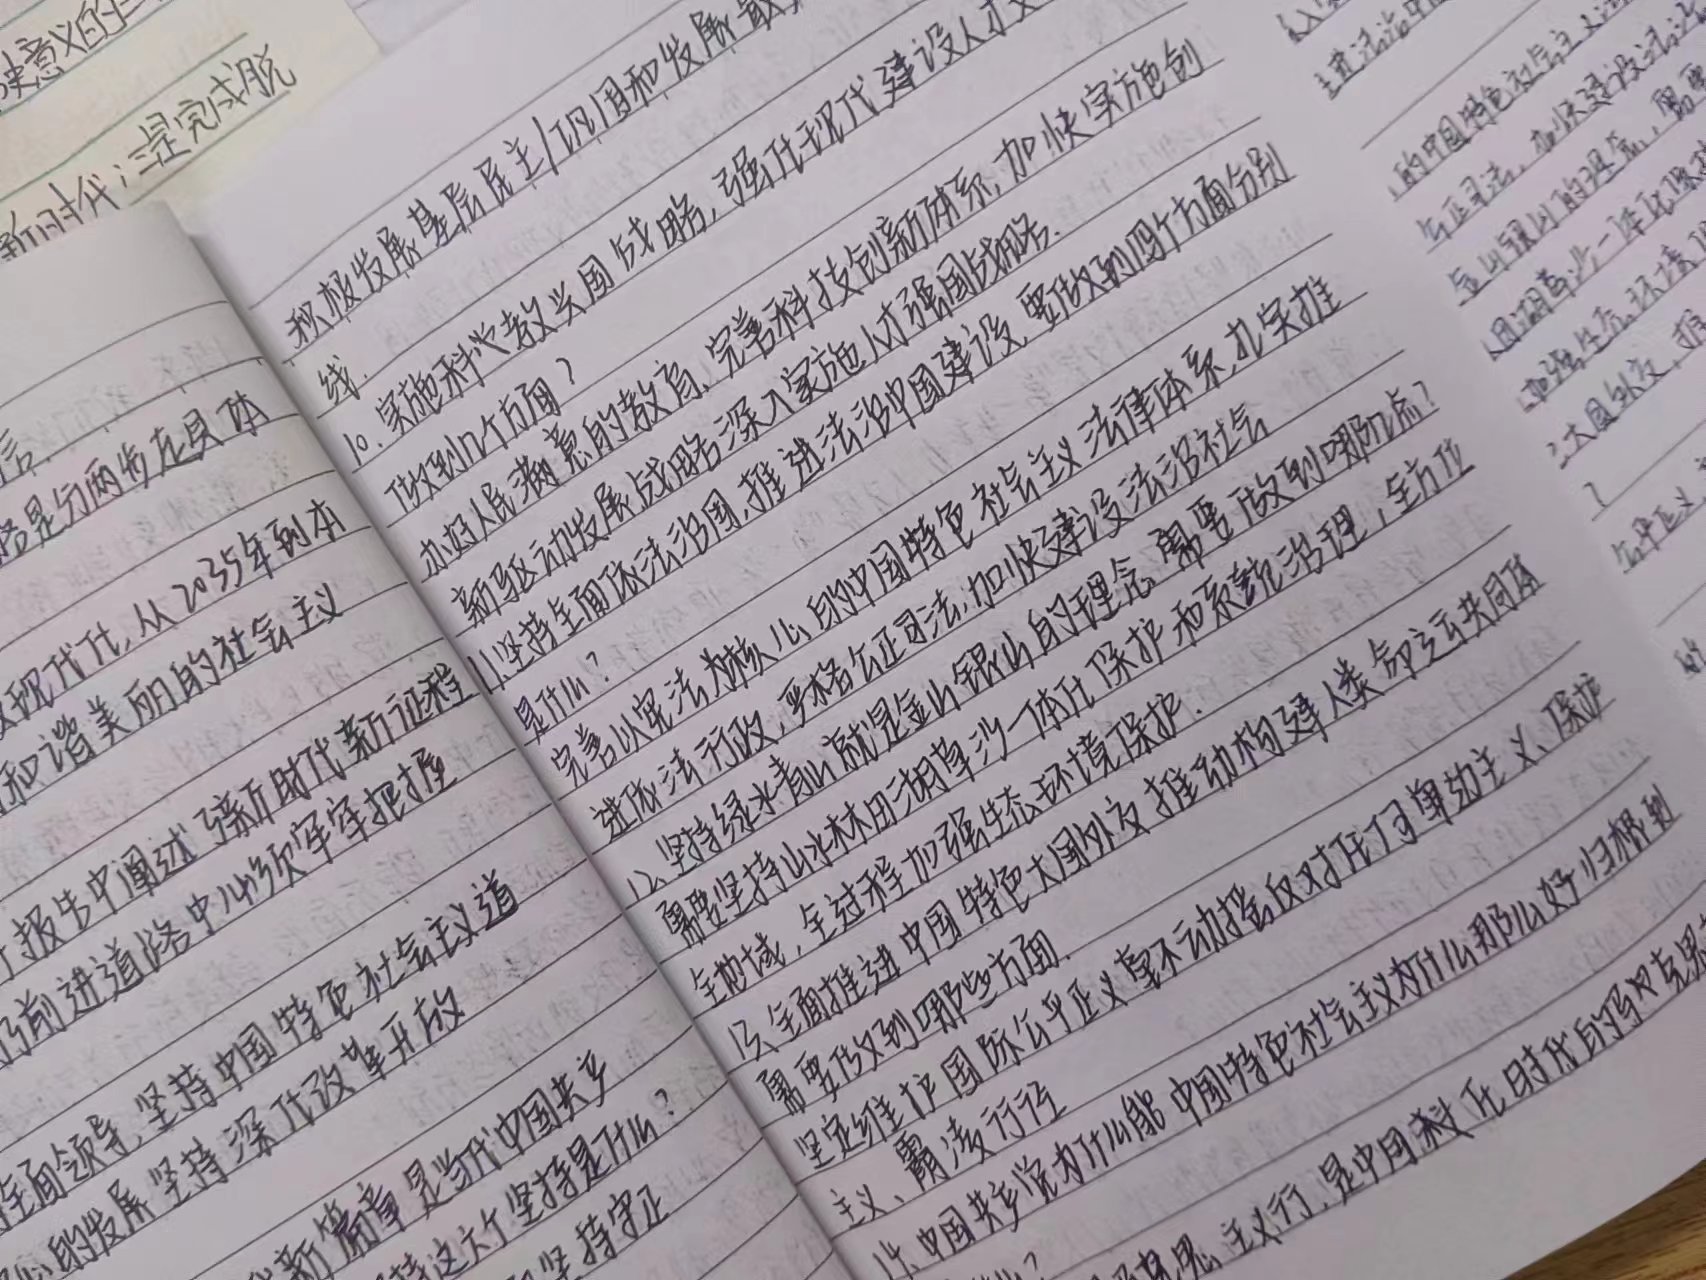 使意义的
新时代；三是完成脱
是分两步走具体
现代化，从2035年到本
和谐美丽的社会主义
报告中阐述了新时代新征程
前进道路中必须牢牢把握
全面领导，坚持中国特色社会主义道
的发展 坚持深化改革开放
新篇章是当代中国共产
持这六个坚持是什么？
坚持守正
积极发展基层民主/巩固和发展最
线.
10、实施科教兴国战略，强化现代建设人才
做到几个方面？
办好人民满意的教育、完善科技创新体系，加快实施创
新驱动发展战略 深入实施人才强国战略.
11、坚持全面依法治国，推进法治中国建设，要做到四个方面分别
是什么？
完善以宪法为核心的中国特色社会主义法律体系，扎实推
进依法行政，严格公正司法，加快建设法治社会
12、坚持绿水青山就是金山银山的理念 需要做到哪几点？
需要坚持山水林田湖草沙一体化保护和系统治理，全方位
全地域，全过程加强生态环境保护.
13、全面推进中国特色大国外交 推动构建人类命运共同体
需要做到哪些方面.
坚定维护国际公平正义 毫不动摇反对任何单边主义、保护
主义、霸凌行径
14、中国共产党为什么能 中国特色社会主义为什么那么好 归根到
主义行，是中国
的中国特色社会主义
公正司法，加快建设法治
金山银山的理念，需要
田湖草沙一体化保
加强生态环境
大国外交，推
？
公平正义
的